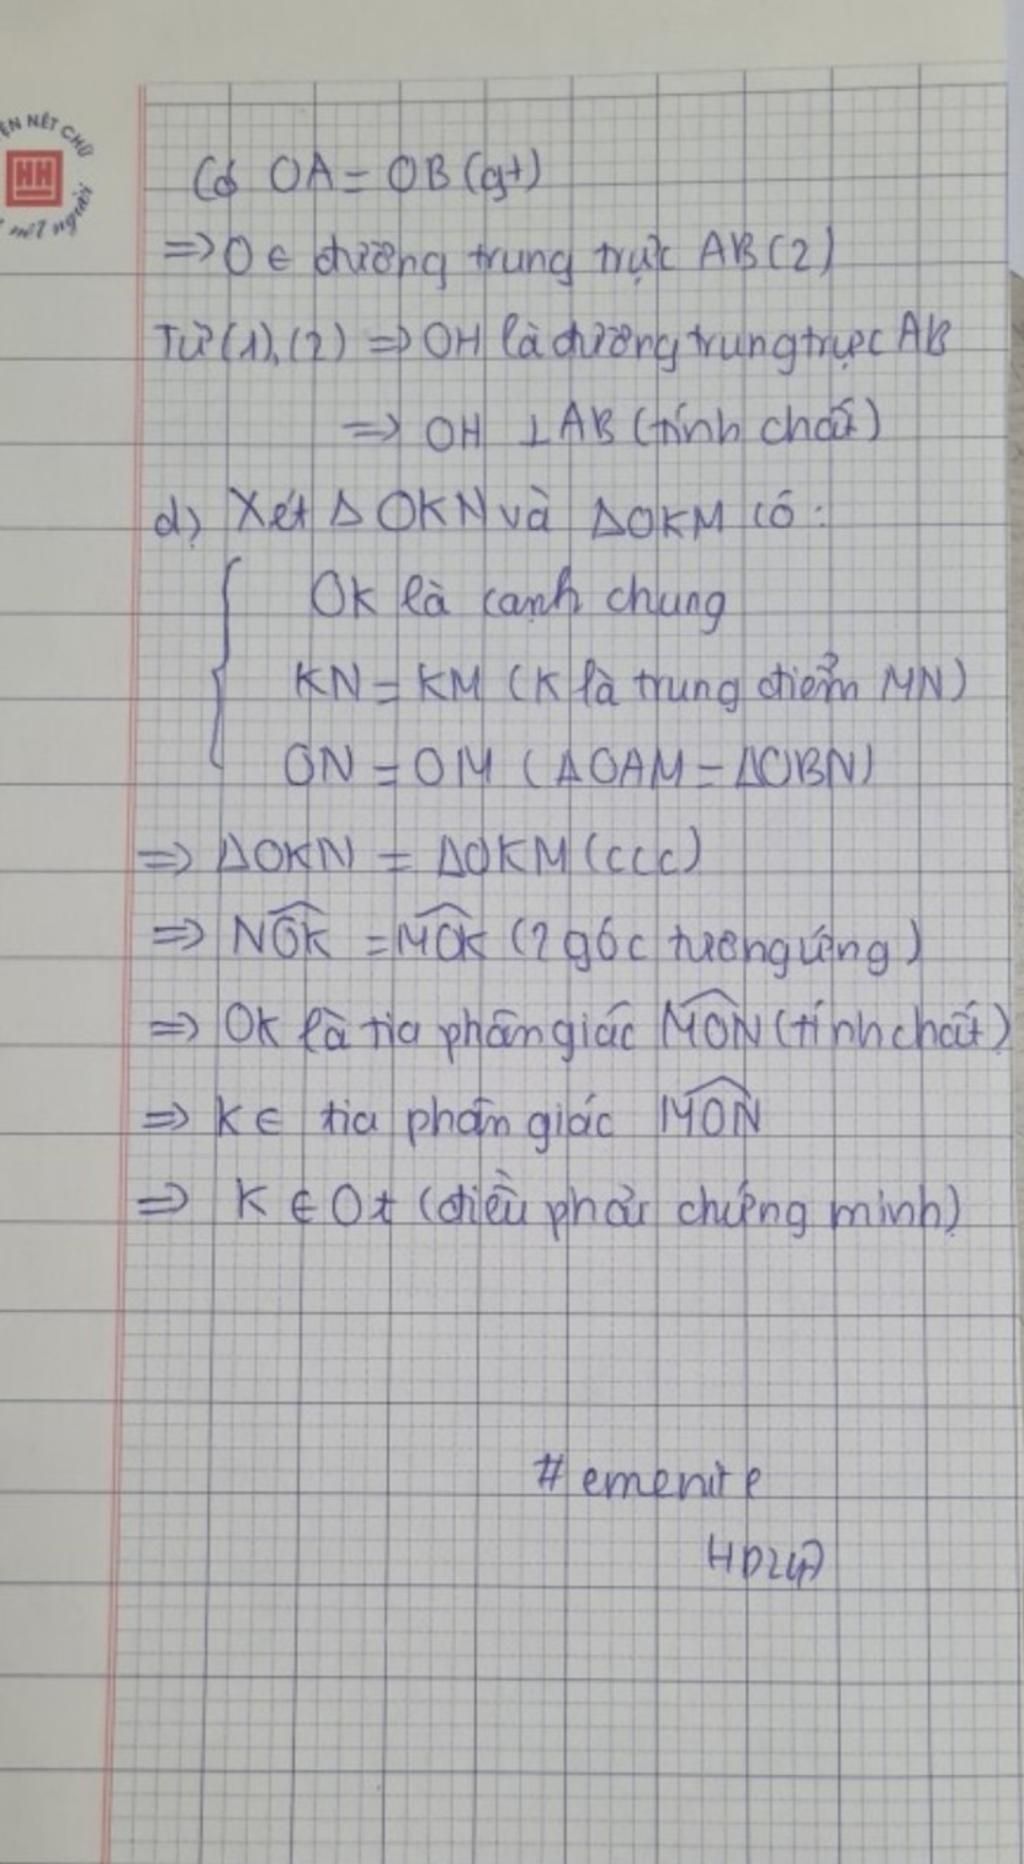 ÈN NÉT CHỮ
HH
nết người
Có OA = OB (gt)
=> O ∈ đường trung trực AB (2)
Từ (1), (2) => OH là đường trung trực AB
=> OH ⊥ AB (tính chất)
d) Xét Δ OKN và ΔOKM có:
OK là cạnh chung
KN = KM (K là trung điểm MN)
ON = OM (ΔOAM = ΔOBN)
=> ΔOKN = ΔOKM (ccc)
=> NÔK = MÔK (2 góc tương ứng)
=> OK là tia phân giác MÔN (tính chất)
=> K ∈ tia phân giác MÔN
=> K ∈ Ot (điều phải chứng minh)
# emenite